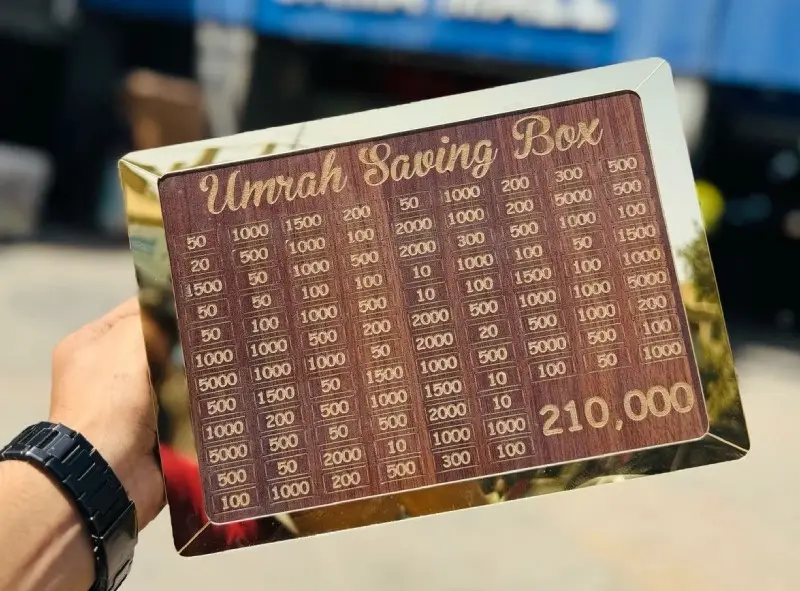 Umrah Saving Box
50 1000 1500 200 50 1000 200 300 500
20 500 1000 100 2000 1000 200 5000 500
1500 50 1000 500 2000 300 500 1000 100
50 50 100 100 10 1000 100 50 1500
50 100 1000 500 10 100 1500 100 1000
1000 1000 500 200 2000 500 1000 1000 5000
5000 1000 1000 50 2000 20 500 1000 200
500 1500 50 1500 1000 500 5000 500 100
1000 200 500 1000 1500 10 100 50 1000
5000 500 50 500 2000 10
500 50 2000 10 1000 1000 210,000
100 1000 200 500 300 100